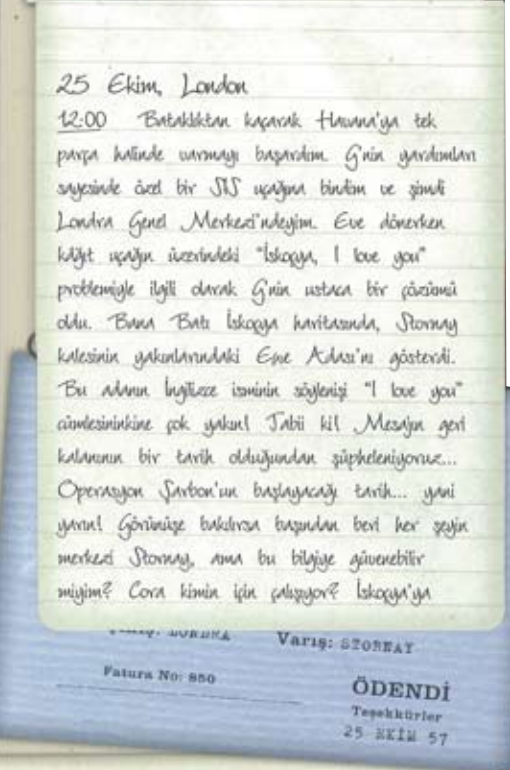 25 Ekim, London
12:00 Bataklıktan kaçarak Havana'ya tek
parça halinde varmayı başardım. G'nin yardımları
sayesinde özel bir SIS uçağına bindim ve şimdi
Londra Genel Merkezi'ndeyim. Eve dönerken
kâğıt uçağın üzerindeki "İskoçya, I love you"
problemiyle ilgili olarak G'nin ustaca bir çözümü
oldu. Bana Batı İskoçya haritasında, Stornay
kalesinin yakınlarındaki Ewe Adası'nı gösterdi.
Bu adanın İngilizce isminin söylenişi "I love you"
cümlesininkine çok yakın! Tabii ki! Mesajın geri
kalanının bir tarih olduğundan şüpheleniyoruz...
Operasyon Şarbon'un başlayacağı tarih... yani
yarın! Görünüşe bakılırsa başından beri her şeyin
merkezi Stornay, ama bu bilgiye güvenebilir
miyim? Cora kimin için çalışıyor? İskoçya'ya
LONDRA Varış: STORNAY
Fatura No: 850
ÖDENDİ
Teşekkürler
25 EKİM 57